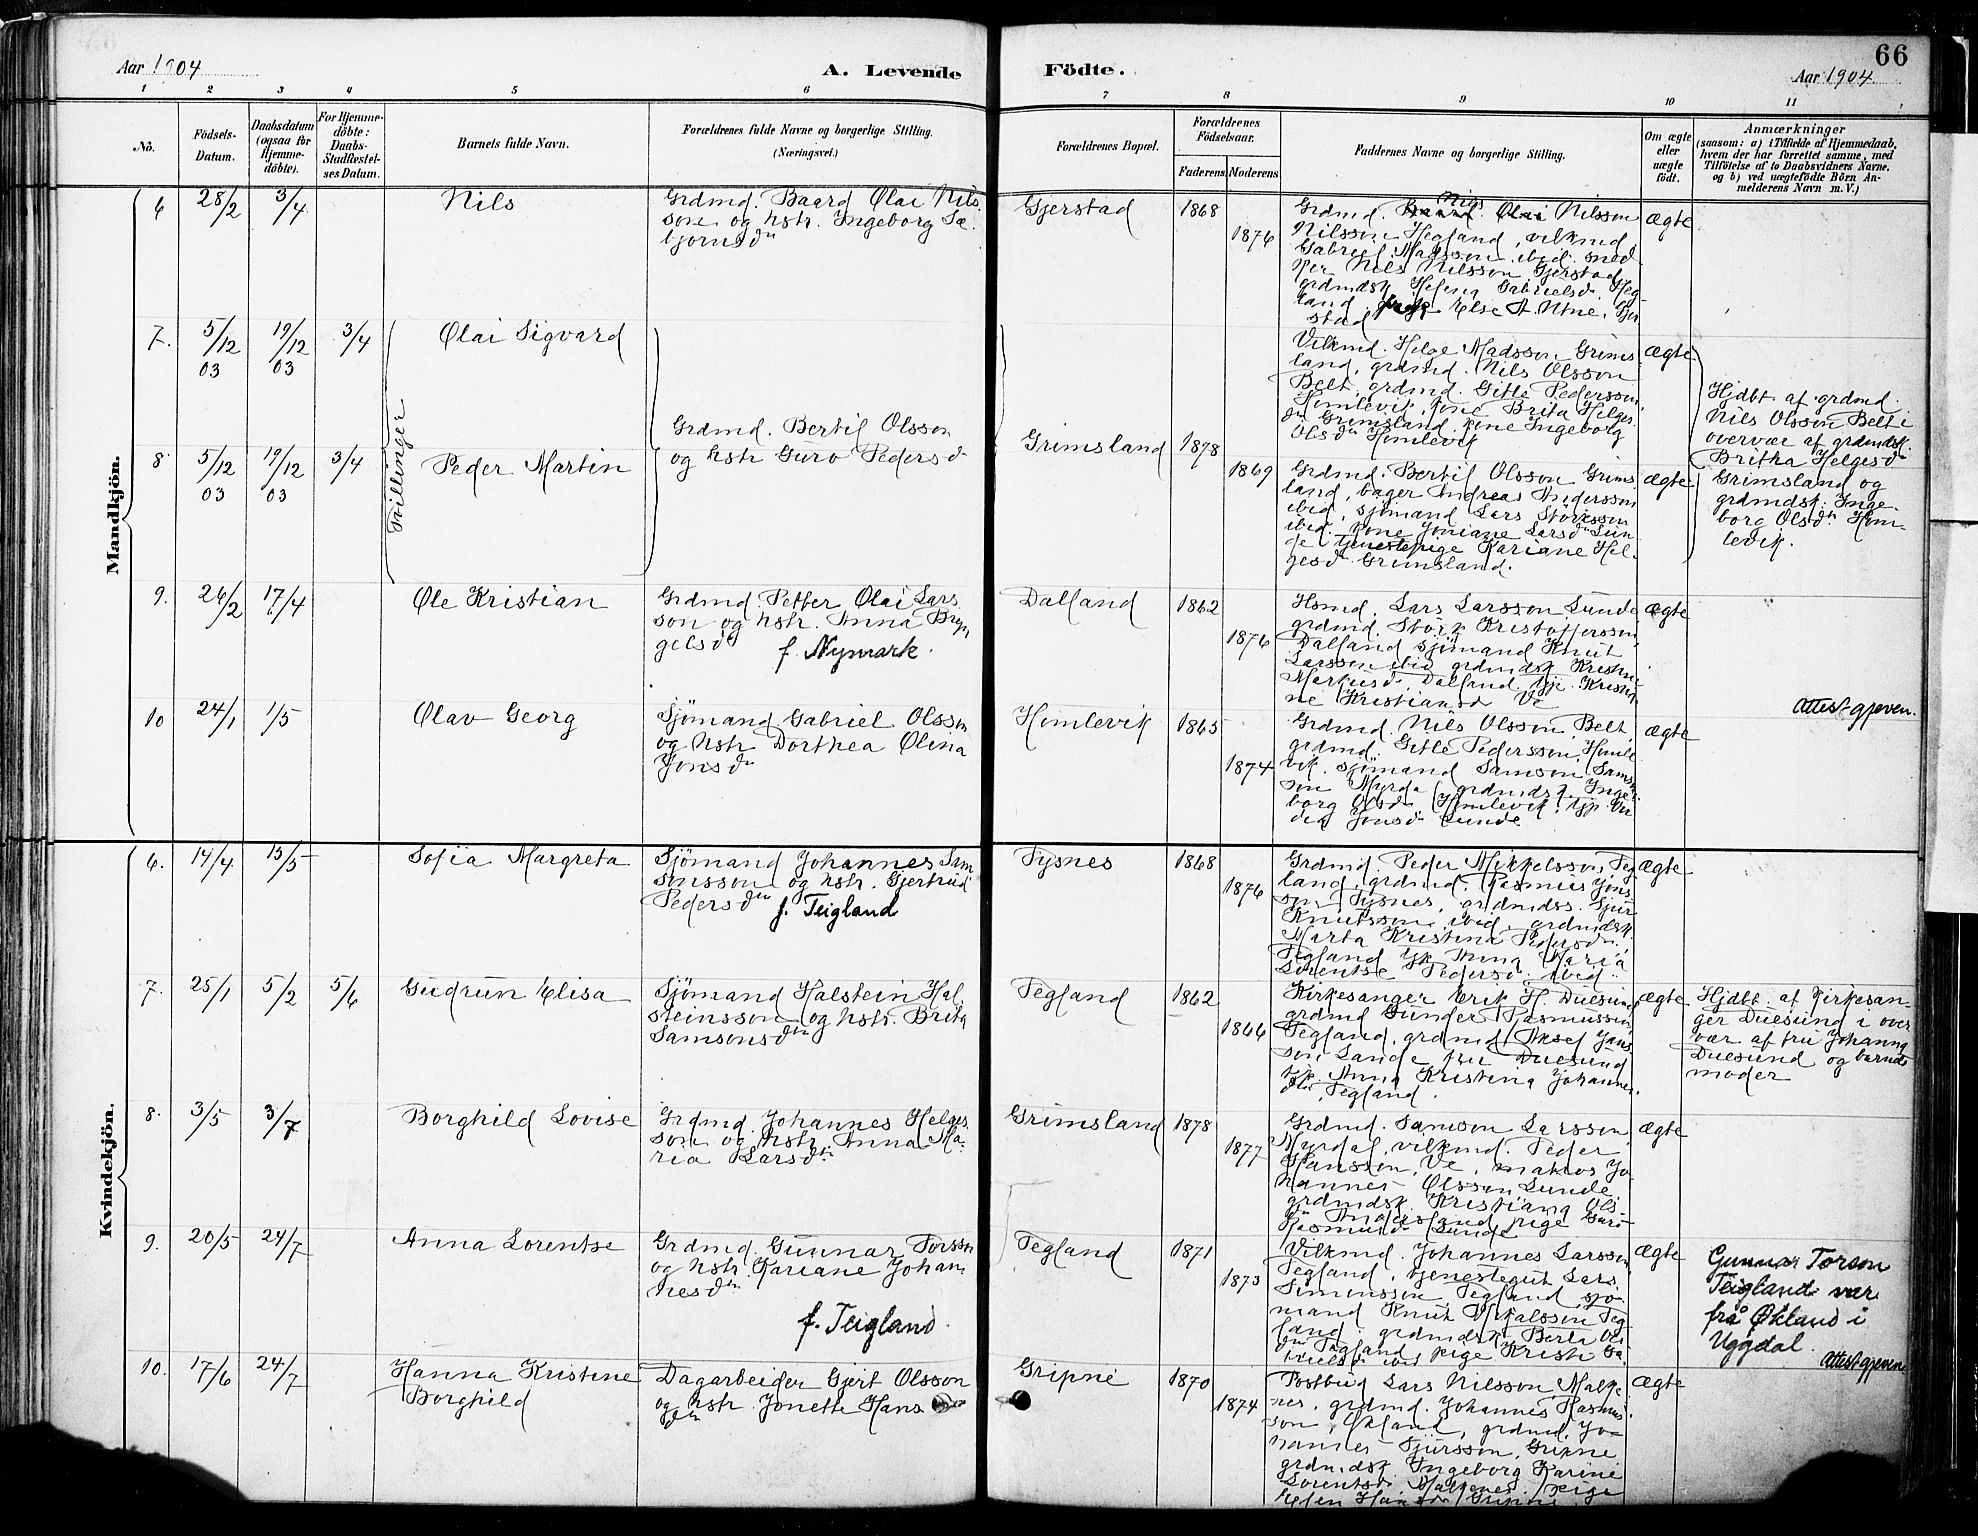 66
Aar 1904
A. Levende
Födte.
Aar 1904.
1 2 3 4 5 6 7 8 9 10 11
No.
Födsels-
Datum.
Daabsdatum
(ogsaa for
Hjemme-
döbte).
For Hjemme-
döbte:
Daabs-
Stadfæstel-
ses Datum.
Barnets fulde Navn.
Forældrenes fulde Navne og borgerlige Stilling.
(Næringsvei.)
Forældrenes Bopæl.
Forældrenes
Födselsaar.
Faderens.
Moderens.
Faddernes Navne og borgerlige Stilling.
Om ægte
eller
uægte
födt.
Anmærkninger
(saasom: a) i Tilfælde af Hjemmedaab,
hvem der har forrettet samme, med
Tilföielse af to Daabsvidners Navne.
og b) ved uægtefödte Börn An-
melderens Navn m. V.)
Mandkjön.
6 28/2 3/4
Nils
Grdmd. Baard Olai Nils
son og hstr. Ingeborg Sæ
bjørnsdtr
Gjerstad
1868
1876
Grdmd. Nils Nilsson
Nilsson Hegland, vilkmd
Gabriel Madsson ibid. sned
ker Nils Nilsson Gjerstad
grdmdsk Helena Gabrielsd. Heg
land pige Else A. Utne, Gjer
stad
ægte
7. 5/12 03 19/12 03 3/4
Olai Sigvard
Vilkmd. Helge Madsson Grims
land, grdmd. Nils Olsson
Belt, grdmd. Gitle Pedersson
Homlevik, kone Brita Helges
dtr Grimsland, kone Ingeborg
Olsdtr Homlevik
ægte
Tvillinger
Grdmd. Bertil Olsson
og hstr Guro Pedersd
Grimsland
1878
1869
Hjdbt. af grdmd.
Nils Olsson Belt i
overvær af grdmdsk.
Britha Helgesdtr
Grimsland og
grdmdsk. Inge
borg Olsdtr Hom-
levik.
8 5/12 03 19/12 03 3/4
Peder Martin
Grdmd. Bertil Olsson Grims
land, bager Andreas Andersson
ibid, sjömand Lars Störksson
ibid. kone Joniane Larsdtr Lun
de, tjenestepige Kariane Hel
gesd. Grimsland.
ægte
9. 26/2 17/4
Ole Kristian
Grdmd. Petter Olai Lars
son og hstr. Anna Bryn
gelsdtr
f. Nymark.
Dalland
1862
1876
Hsmd. Lars Larsson Lunde
grdmd. Störk Kristoffersson
Dalland sjömand Knut
Larsson ibid grdmdsk Kristine
Markusd. Dalland tjp. Kristi
ne Kristiansd Ve
ægte
10 24/1 1/5
Olav Georg
Sjömand Gabriel Olsson
og hstr Dorthea Olina
Jonsdtr
Homlevik
1865
1874
Grdmd. Nils Olsson Belt
grdmd. Gitle Pedersson Homle
vik. sjömand Samson Sams
son Myrda grdmdsk. Inge
borg Olsd. Homlevik, tjp.
Jonsd Lunde
ægte
Attest gjeven.
Kvindekjön.
6. 14/4 15/5
Sofia Margreta
Sjömand Johannes Sam
sonsson og hstr. Gjertrud
Pedersdtr
f. Teigland
Tysnes
1868
1876
Grdmd. Peder Mikkelsson Teg
land, grdmd. Rasmus Jons
son Tysnes, grdmdss. Sjur
Knutsson ibid, grdmdsk.
Marta Kristina Pedersd.
Tegland Anna Maria
Lorentse Pedersd. ibid.
ægte
7. 25/1 5/2 5/6
Gudrun Elisa
Sjömand Halstein Hal
steinsson og hstr. Brita
Samsonsdtr
Tegland
1862
1866
Kirkesanger Erik H. Duesund,
grdmd Gunder Rasmusson
Tegland, grdmd Aksel Jans
son Lande fru Duesund
Anna Kristina Johannes
dtr, Tegland.
ægte
Hjdbt. af Kirkesan-
ger Duesund i over
vær af fru Johanna
Duesund og barnets
moder
8. 3/5 3/7
Borghild Lovise
Grdmd. Johannes Helges
son og hstr. Anna Ma-
ria Larsdtr
Grimsland
1878
1877
Grdmd. Samson Larsson
Myrdal, vilkmd. Peder
Hansson, Ve, Jo
hannes Olsson Lunde
grdmdsk. Kristiana Ols
pige Guro
Rasmusd Lunde
ægte
9. 20/5 24/7
Anna Lorentse
Grdmd. Gunnar Torsson
og hstr. Kariane Johan
nesdtr
f. Teigland.
Tegland
1871
1873
Vilkmd. Johannes Larsson
Tegland, tjenestegut Lars
Simonsson Tegland, sjö
mand Knut Mikalsson Teg
land, grdmdsk Berta
Tegland pige Kristi
ægte
Gunnar Torson
Teigland var
frå Økland i
Uggdal.
Attest gjeven
10. 17/6 24/7
Hanna Kristine
Borghild
Dagarbeider Gjert Olsson
og hstr. Jonette Hans
dtr
Gripne
1870
1874
Postbud Lars Nilsson Malke
nes, grdmd. Johannes Rasmus
son, Økland, grdmd. Jo-
hannes Sjursson, Gripne
grdmdsk. Ingeborg Karine
Lorentsd. Malkenes, pige
Hansd Gripne
ægte